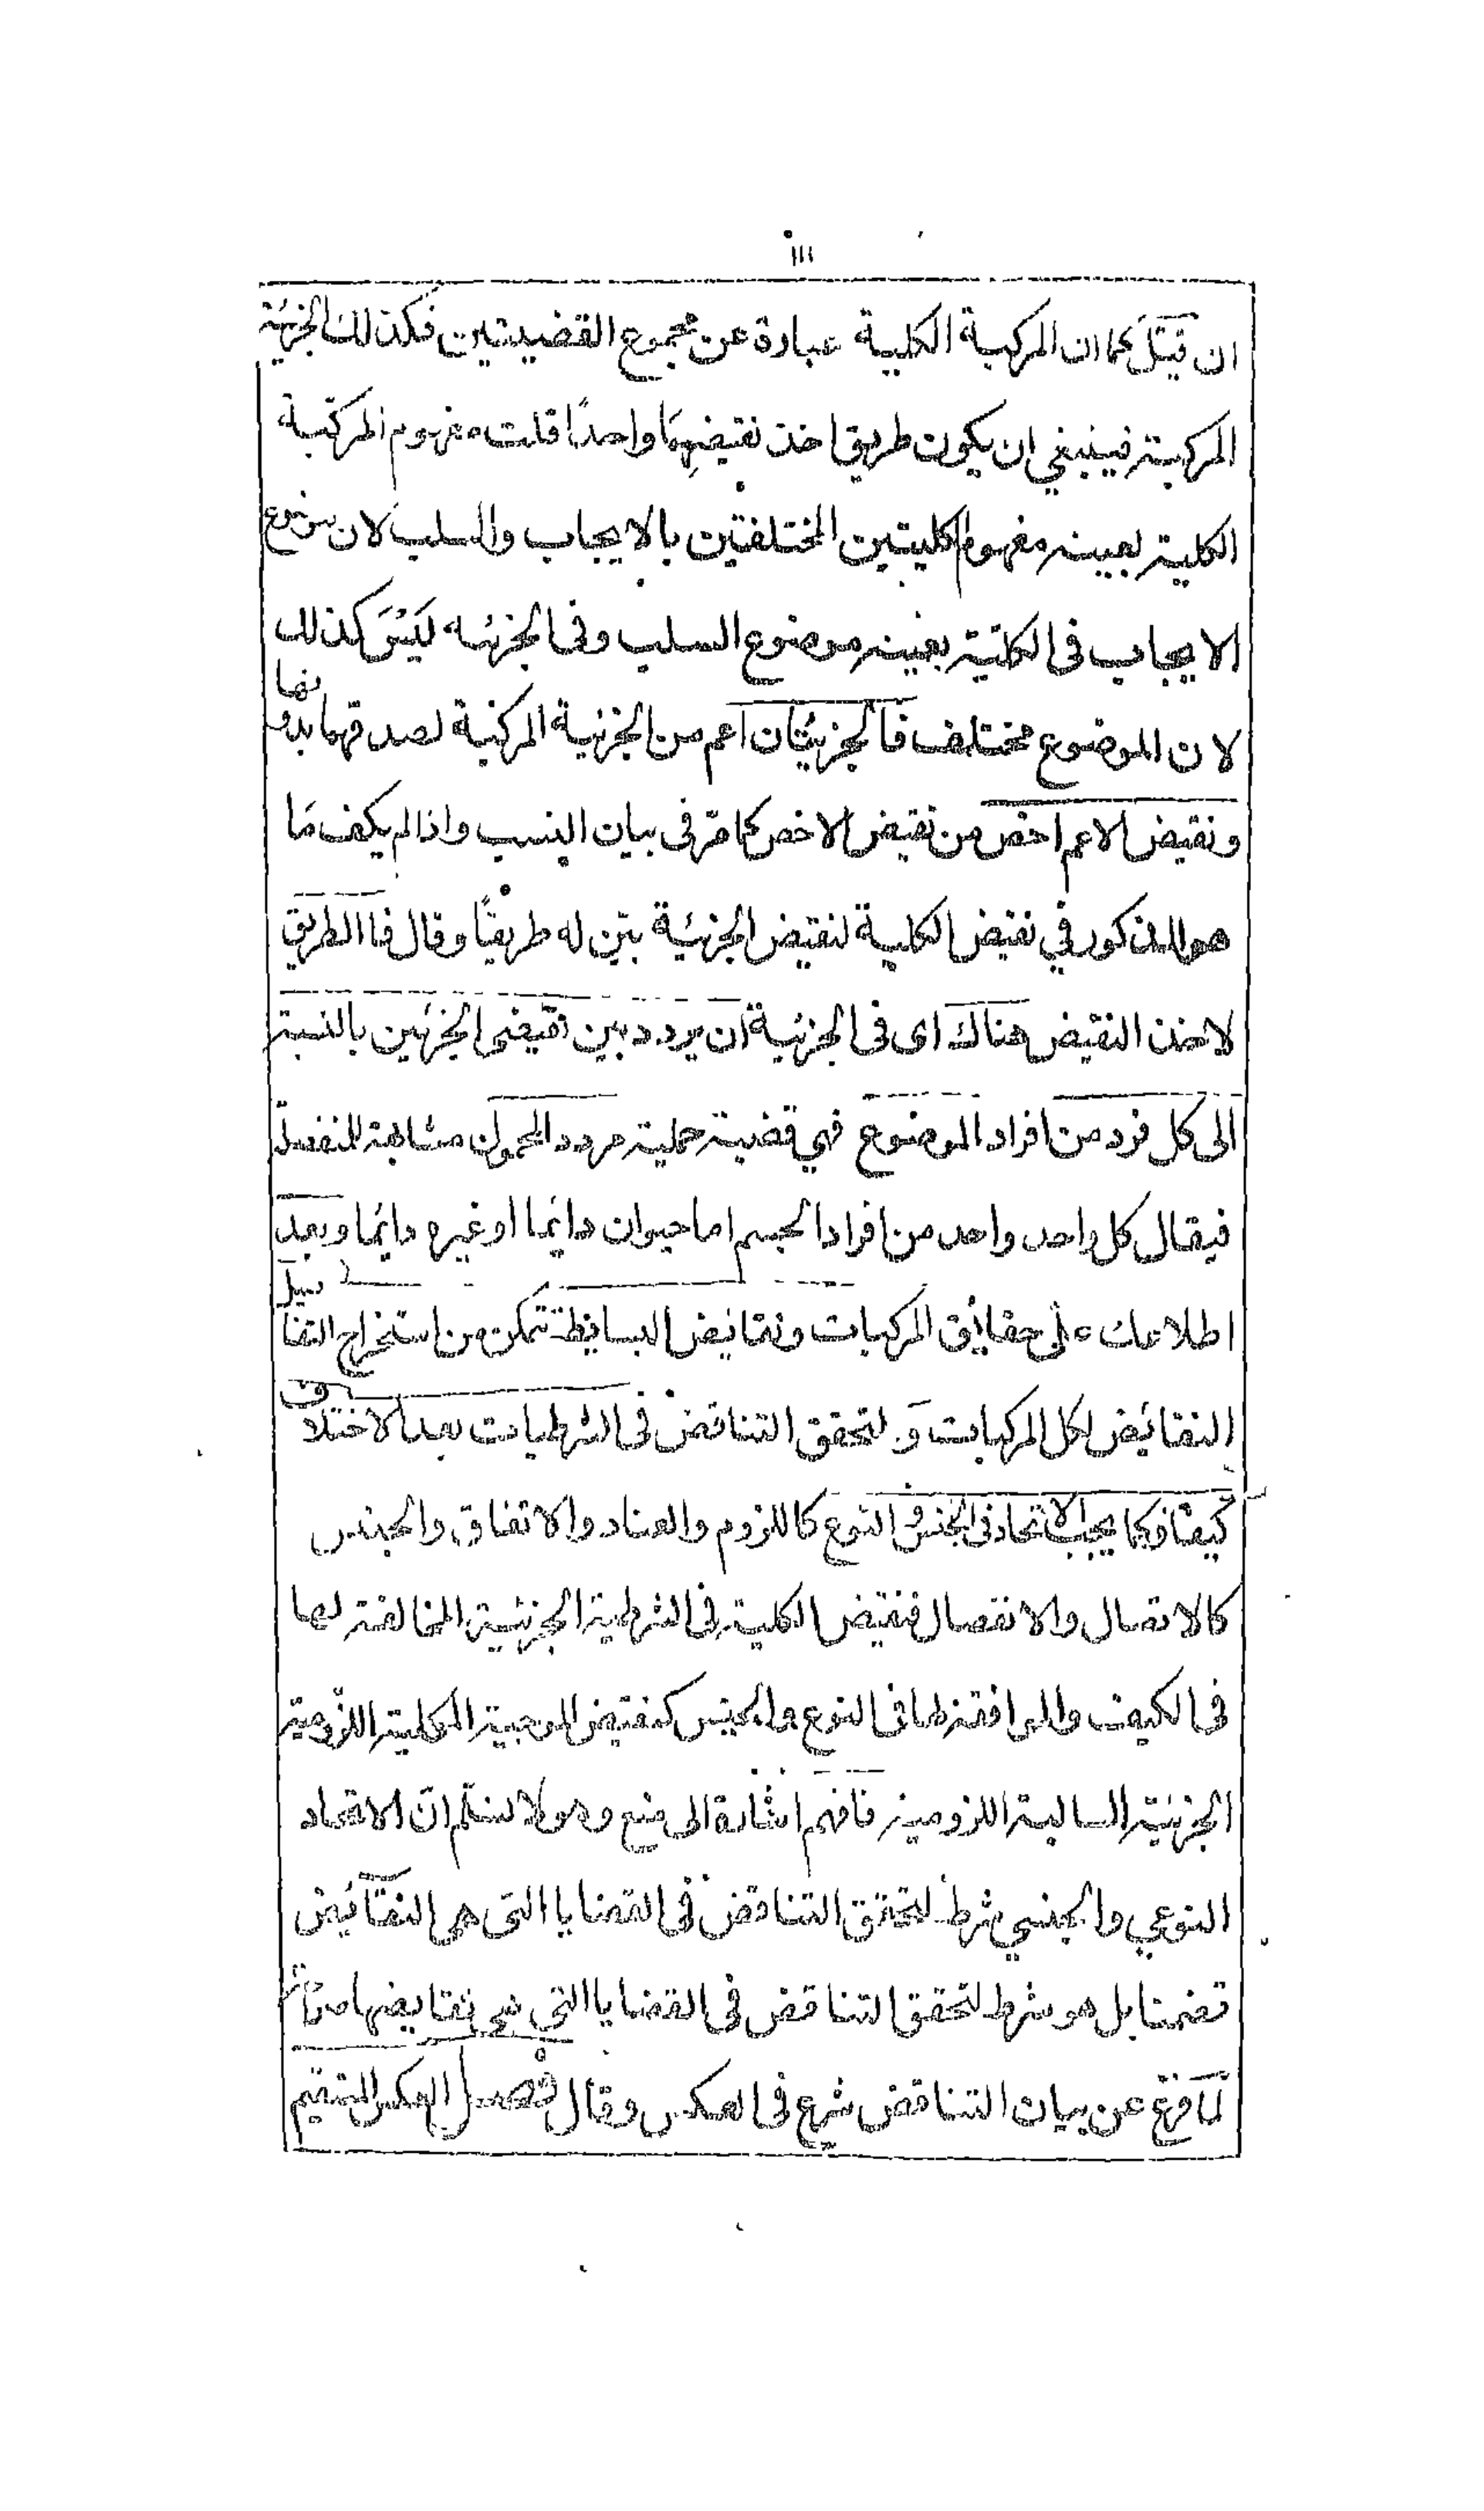 ١١١
ان قيل كما ان المركبة الكلية عبارة عن مجموع القضيتين فكذلك الجزئية
المركبة فينبغي ان يكون طريق اخذ نقيضهما واحدًا قلت مفهوم المركبة
الكلية بعينه مفهوم الكليتين المختلفتين بالايجاب والسلب لان موضوع
الايجاب فى الكلية بعينه موضوع السلب وفى الجزئية ليس كذلك
لان الموضوع مختلف فالجزئيتان اعم من الجزئية المركبة لصدقهما بدونها
ونقيض الاعم اخص من نقيض الاخص كما مر فى بيان النسب واذا لم يكف ما
هو المذكور في نقيض الكلية لنقيض الجزئية بيّن له طريقًا وقال فالطريق
لاخذ النقيض هناك اى فى الجزئية ان يردد بين نقيضى الجزئين بالنسبة
الى كل فرد من افراد الموضوع فهي قضية حملية مردد المحمول مشابهة للمنفصلة
فيقال كل واحد واحد من افراد الجسم اما حيوان دائما او غيره دائما وبعد
اطلاعك على حقائق المركبات ونقائض البسائط تتمكن من استخراج التفاصيل
النقائض لكل المركبات و لتحقق التناقض فى الشرطيات بعد الاختلاف
كيفًا وكما يجب الاتحاد فى الجنس و النوع كاللزوم والعناد والاتفاق والجنس
كالاتصال والانفصال فنقيض الكلية فى الشرطية الجزئية المخالفة لها
فى الكيف والموافقة لها فى النوع والجنس كنقيض الموجبة الكلية اللزومية
الجزئية السالبة اللزومية فافهم اشارة الى منع وهو لا نسلم ان الاتحاد
النوعي والجنسي شرط لتحقق التناقض فى القضايا التى هى النقائض
تضمنا بل هو شرط لتحقق التناقض فى القضايا التي هي نقايضها
لما فرغ عن بيان التناقض شرع فى العكس وقال فصل العكس المستقيم